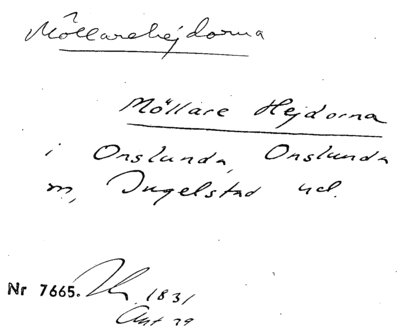 Möllarehejdorna
Möllare Hejdorna
i Onslunda, Onslunda
sn, Ingelstad hd.
Nr 7665. 1831